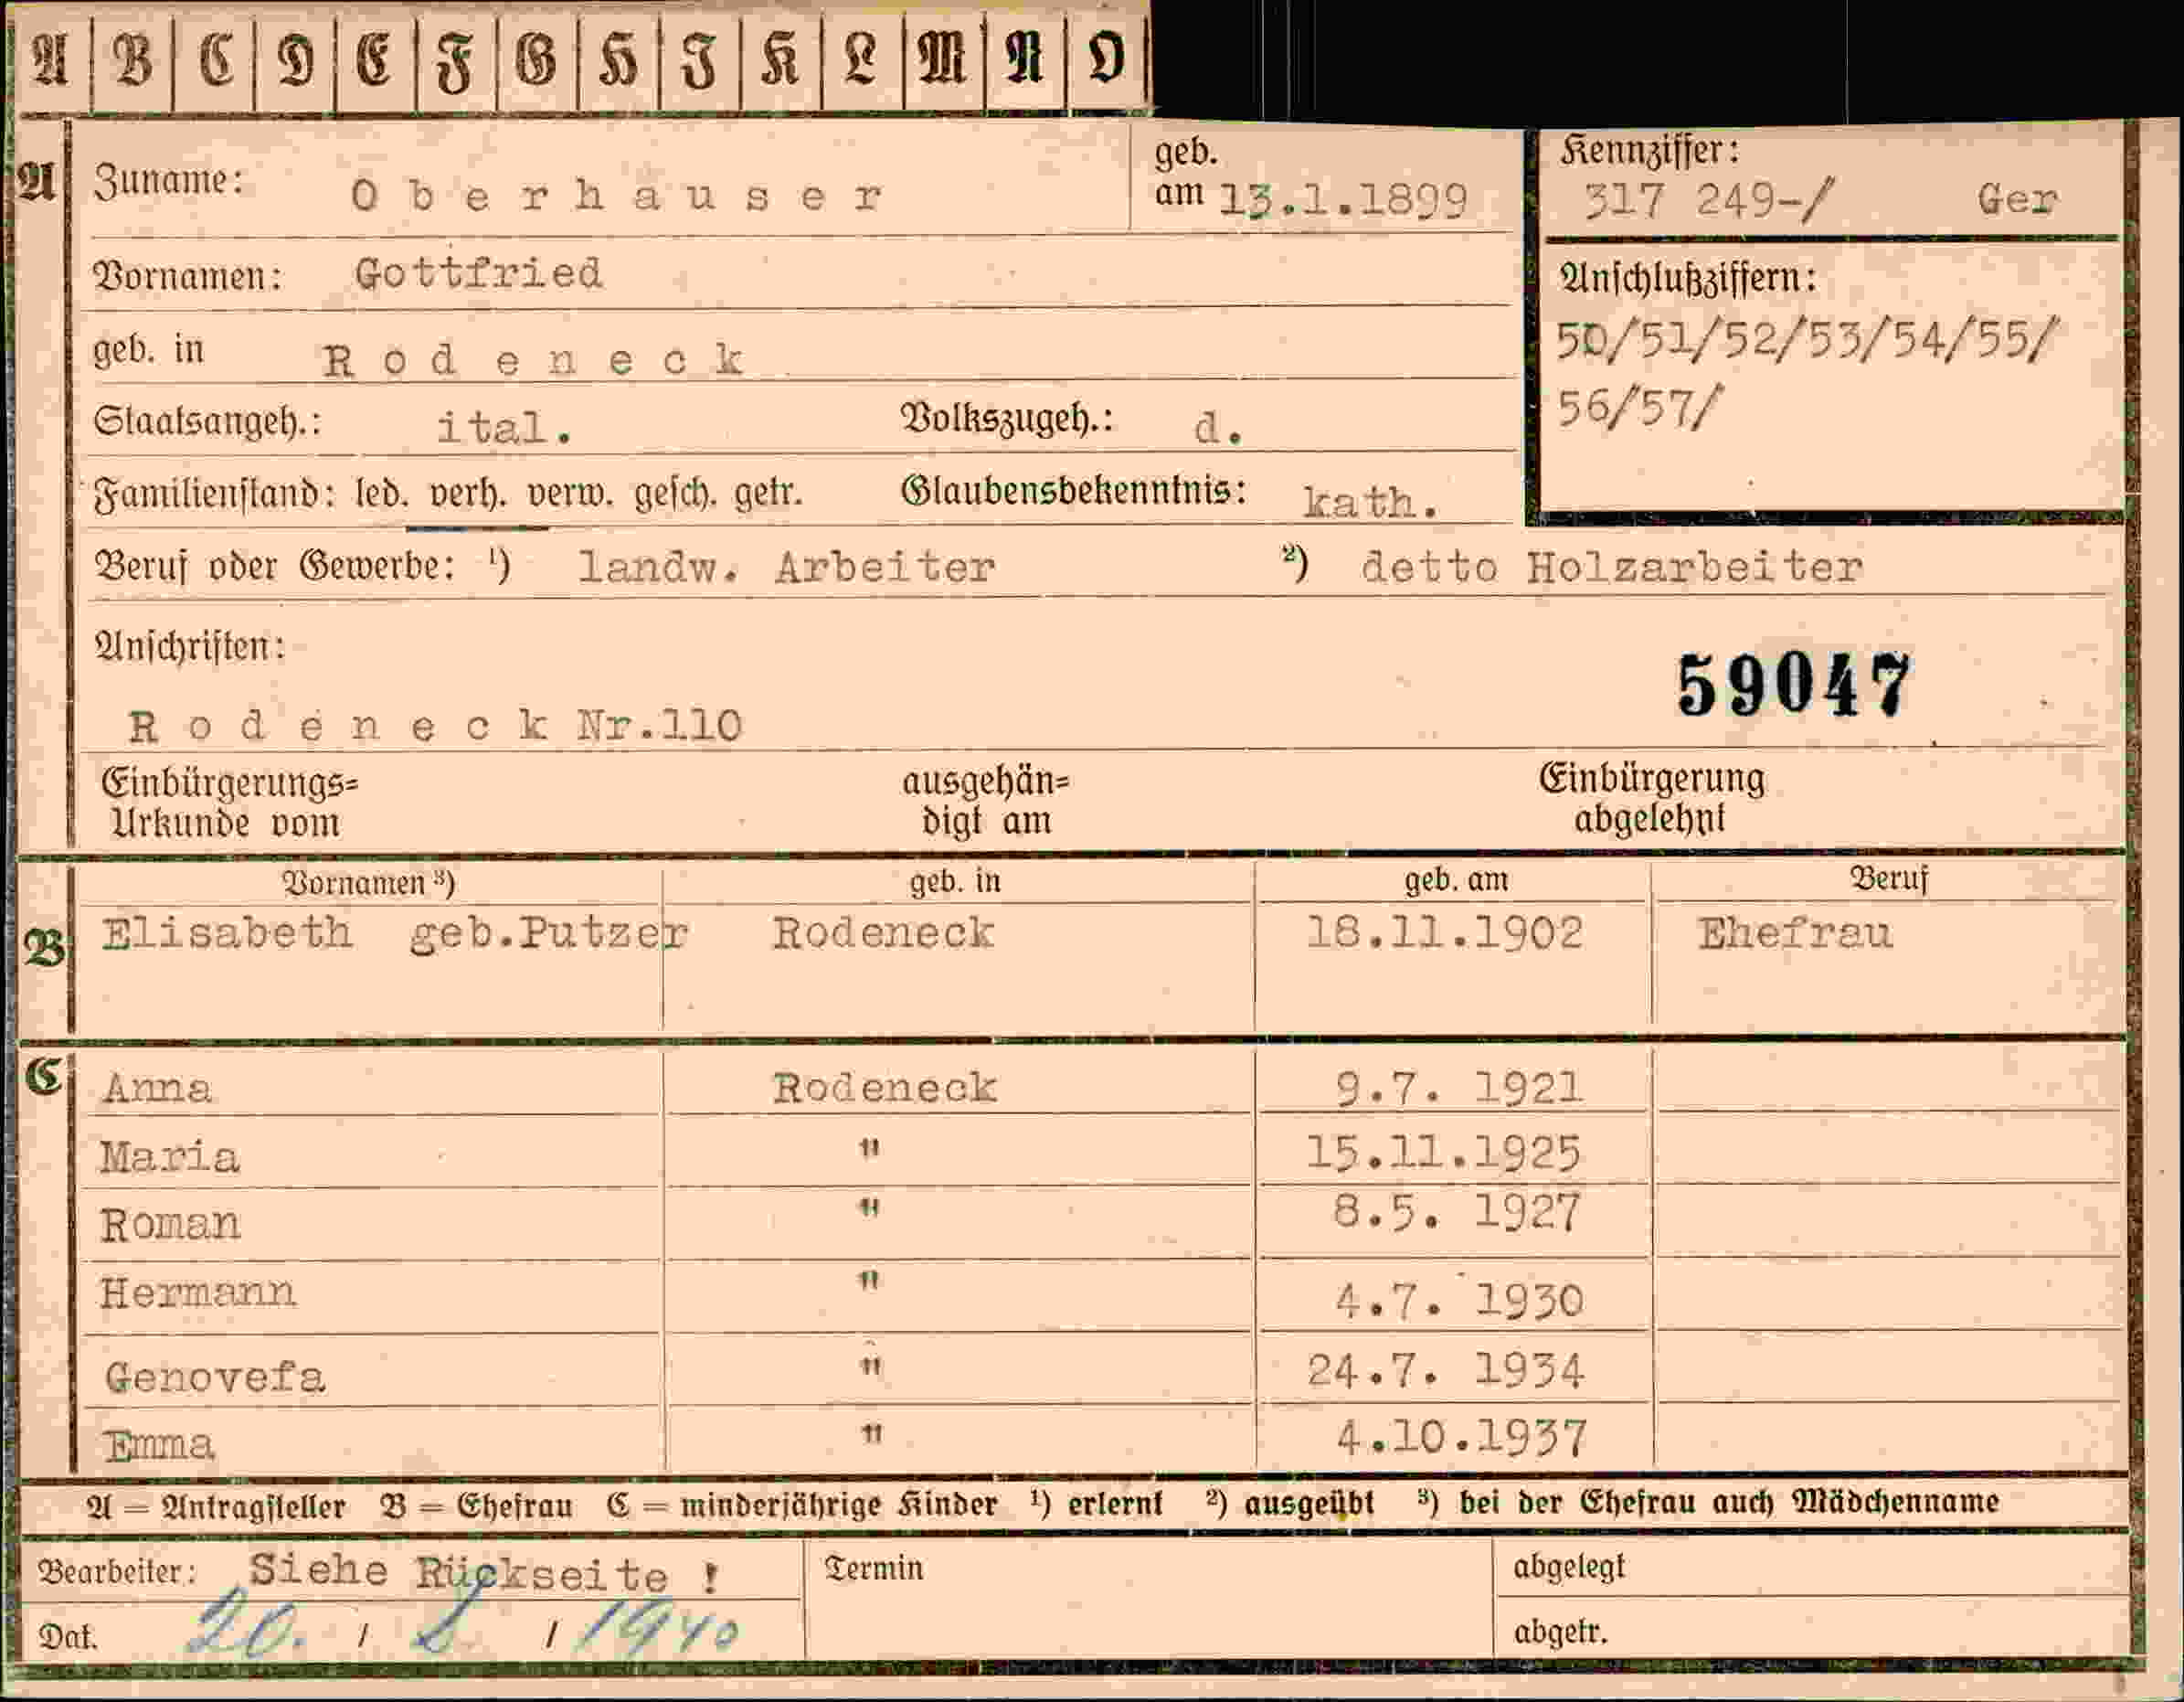 A B C D E F G H I K L M N O
A Zuname: Oberhauser geb. am 13.1.1899
Kennziffer:
317 249-/ Ger
Vornamen: Gottfried
Anschlußziffern:
50/51/52/53/54/55/
56/57/
geb. in Rodeneck
Staatsangeh.: ital. Volkszugeh.: d.
Familienstand: led. verh. verw. gesch. getr. Glaubensbekenntnis: kath.
Beruf oder Gewerbe: ¹) landw. Arbeiter ²) detto Holzarbeiter
Anschriften:
59047
Rodeneck Nr.110
Einbürgerungs= ausgehän= Einbürgerung
Urkunde vom digt am abgelehnt
Vornamen ³) geb. in geb. am Beruf
B Elisabeth geb.Putzer Rodeneck 18.11.1902 Ehefrau
C Anna Rodeneck 9.7. 1921
Maria " 15.11.1925
Roman " 8.5. 1927
Hermann " 4.7. 1930
Genovefa " 24.7. 1934
Emma " 4.10.1937
A = Antragsteller B = Ehefrau C = minderjährige Kinder ¹) erlernt ²) ausgeübt ³) bei der Ehefrau auch Mädchenname
Bearbeiter: Siehe Rückseite ! Termin abgelegt
Dat. 20. / / 1940 abgetr.